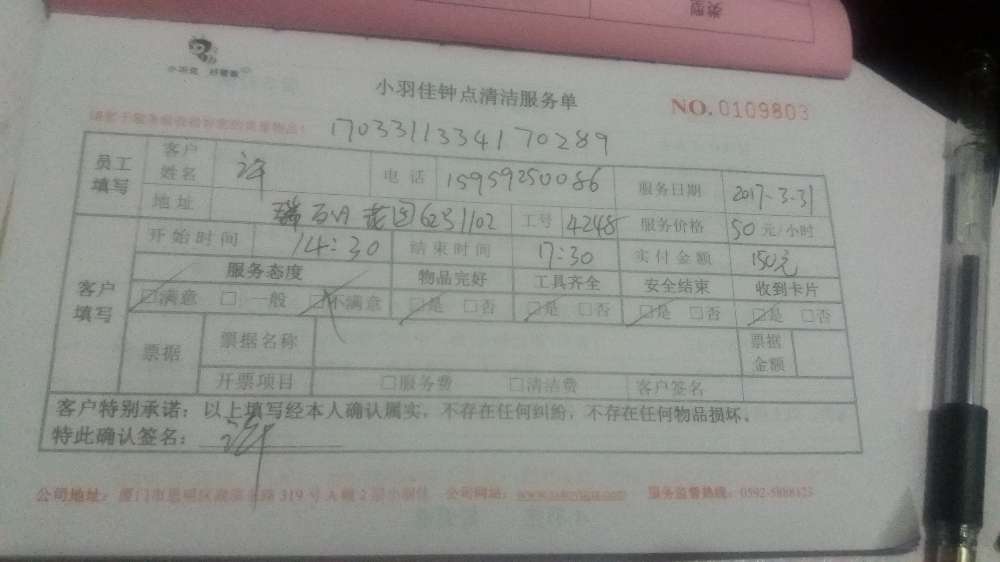 类型
小羽佳 好管家
小羽佳钟点清洁服务单
NO. 0109803
17033113341 70289
员工填写 客户姓名 许 电话 15959250086 服务日期 2017.3.31
地址 花园 623 1102 工号 4248 服务价格 50元/小时
开始时间 14:30 结束时间 17:30 实付金额 150元
客户填写 服务态度 物品完好 工具齐全 安全结束 收到卡片
☑满意 □一般 ☑不满意 ☑是 □否 ☑是 □否 ☑是 □否 ☑是 □否
票据 票据名称 票据金额
开票项目 □服务费 □清洁费 客户签名
客户特别承诺：以上填写经本人确认属实，不存在任何纠纷，不存在任何物品损坏。
特此确认签名：许
公司地址：厦门市思明区 319号A幢2层小羽佳 公司网站： 服务监督热线：0592-5888123